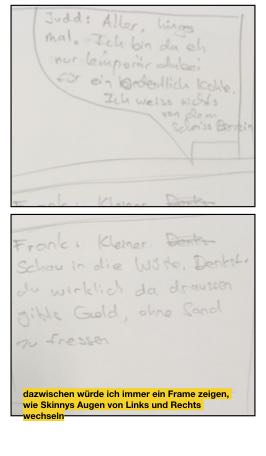 Judd: Alter, hings
mal. Ich bin da eh
nur temporär dabei
für ein ordentlich Kohle.
Ich weiss nichts
von dem
Schniss Berein
Frank: Kleiner
Frank: Kleiner. Denk
Schau in die Wüste. Denkst
du wirklich da draussen
gibts Geld, ohne Sand
zu fressen
dazwischen würde ich immer ein Frame zeigen,
wie Skinnys Augen von Links und Rechts
wechseln